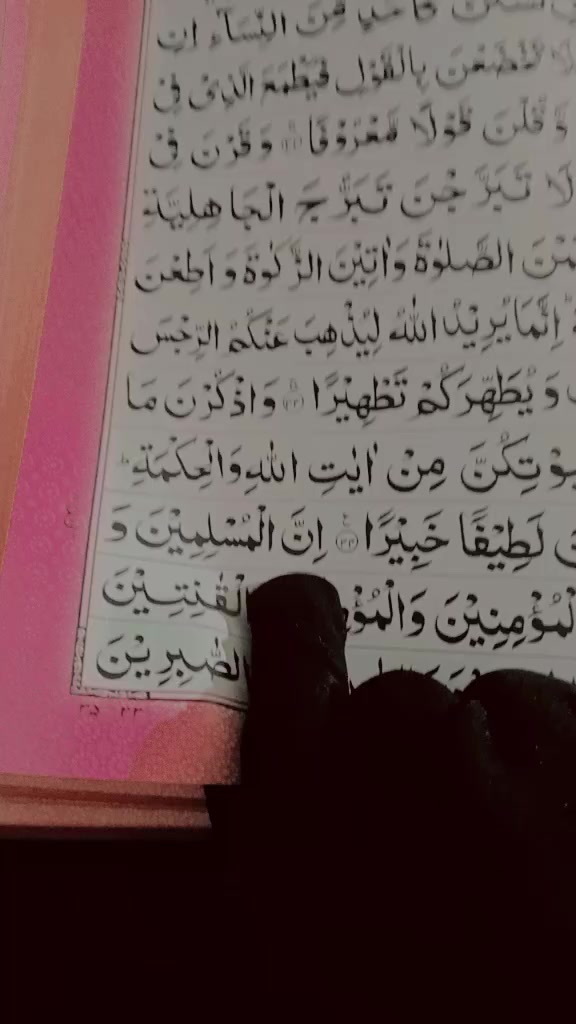 مِّنَ النِّسَآءِ اِنِ
تَخْضَعْنَ بِالْقَوْلِ فَيَطْمَعَ الَّذِیْ فِیْ
وَّ قُلْنَ قَوْلًا مَّعْرُوْفًا ۝ وَ قَرْنَ فِیْ
لَا تَبَرَّجْنَ تَبَرُّجَ الْجَاهِلِيَّةِ
الصَّلٰوةَ وَاٰتِيْنَ الزَّكٰوةَ وَ اَطِعْنَ
اِنَّمَا يُرِيْدُ اللّٰهُ لِيُذْهِبَ عَنْكُمُ الرِّجْسَ
وَ يُطَهِّرَكُمْ تَطْهِيْرًا ۝ وَاذْكُرْنَ مَا
بُيُوْتِكُنَّ مِنْ اٰيٰتِ اللّٰهِ وَالْحِكْمَةِ
لَطِيْفًا خَبِيْرًا ۝۳۴ اِنَّ الْمُسْلِمِيْنَ وَ
الْمُؤْمِنِيْنَ الْقٰنِتِيْنَ
الصّٰبِرِيْنَ